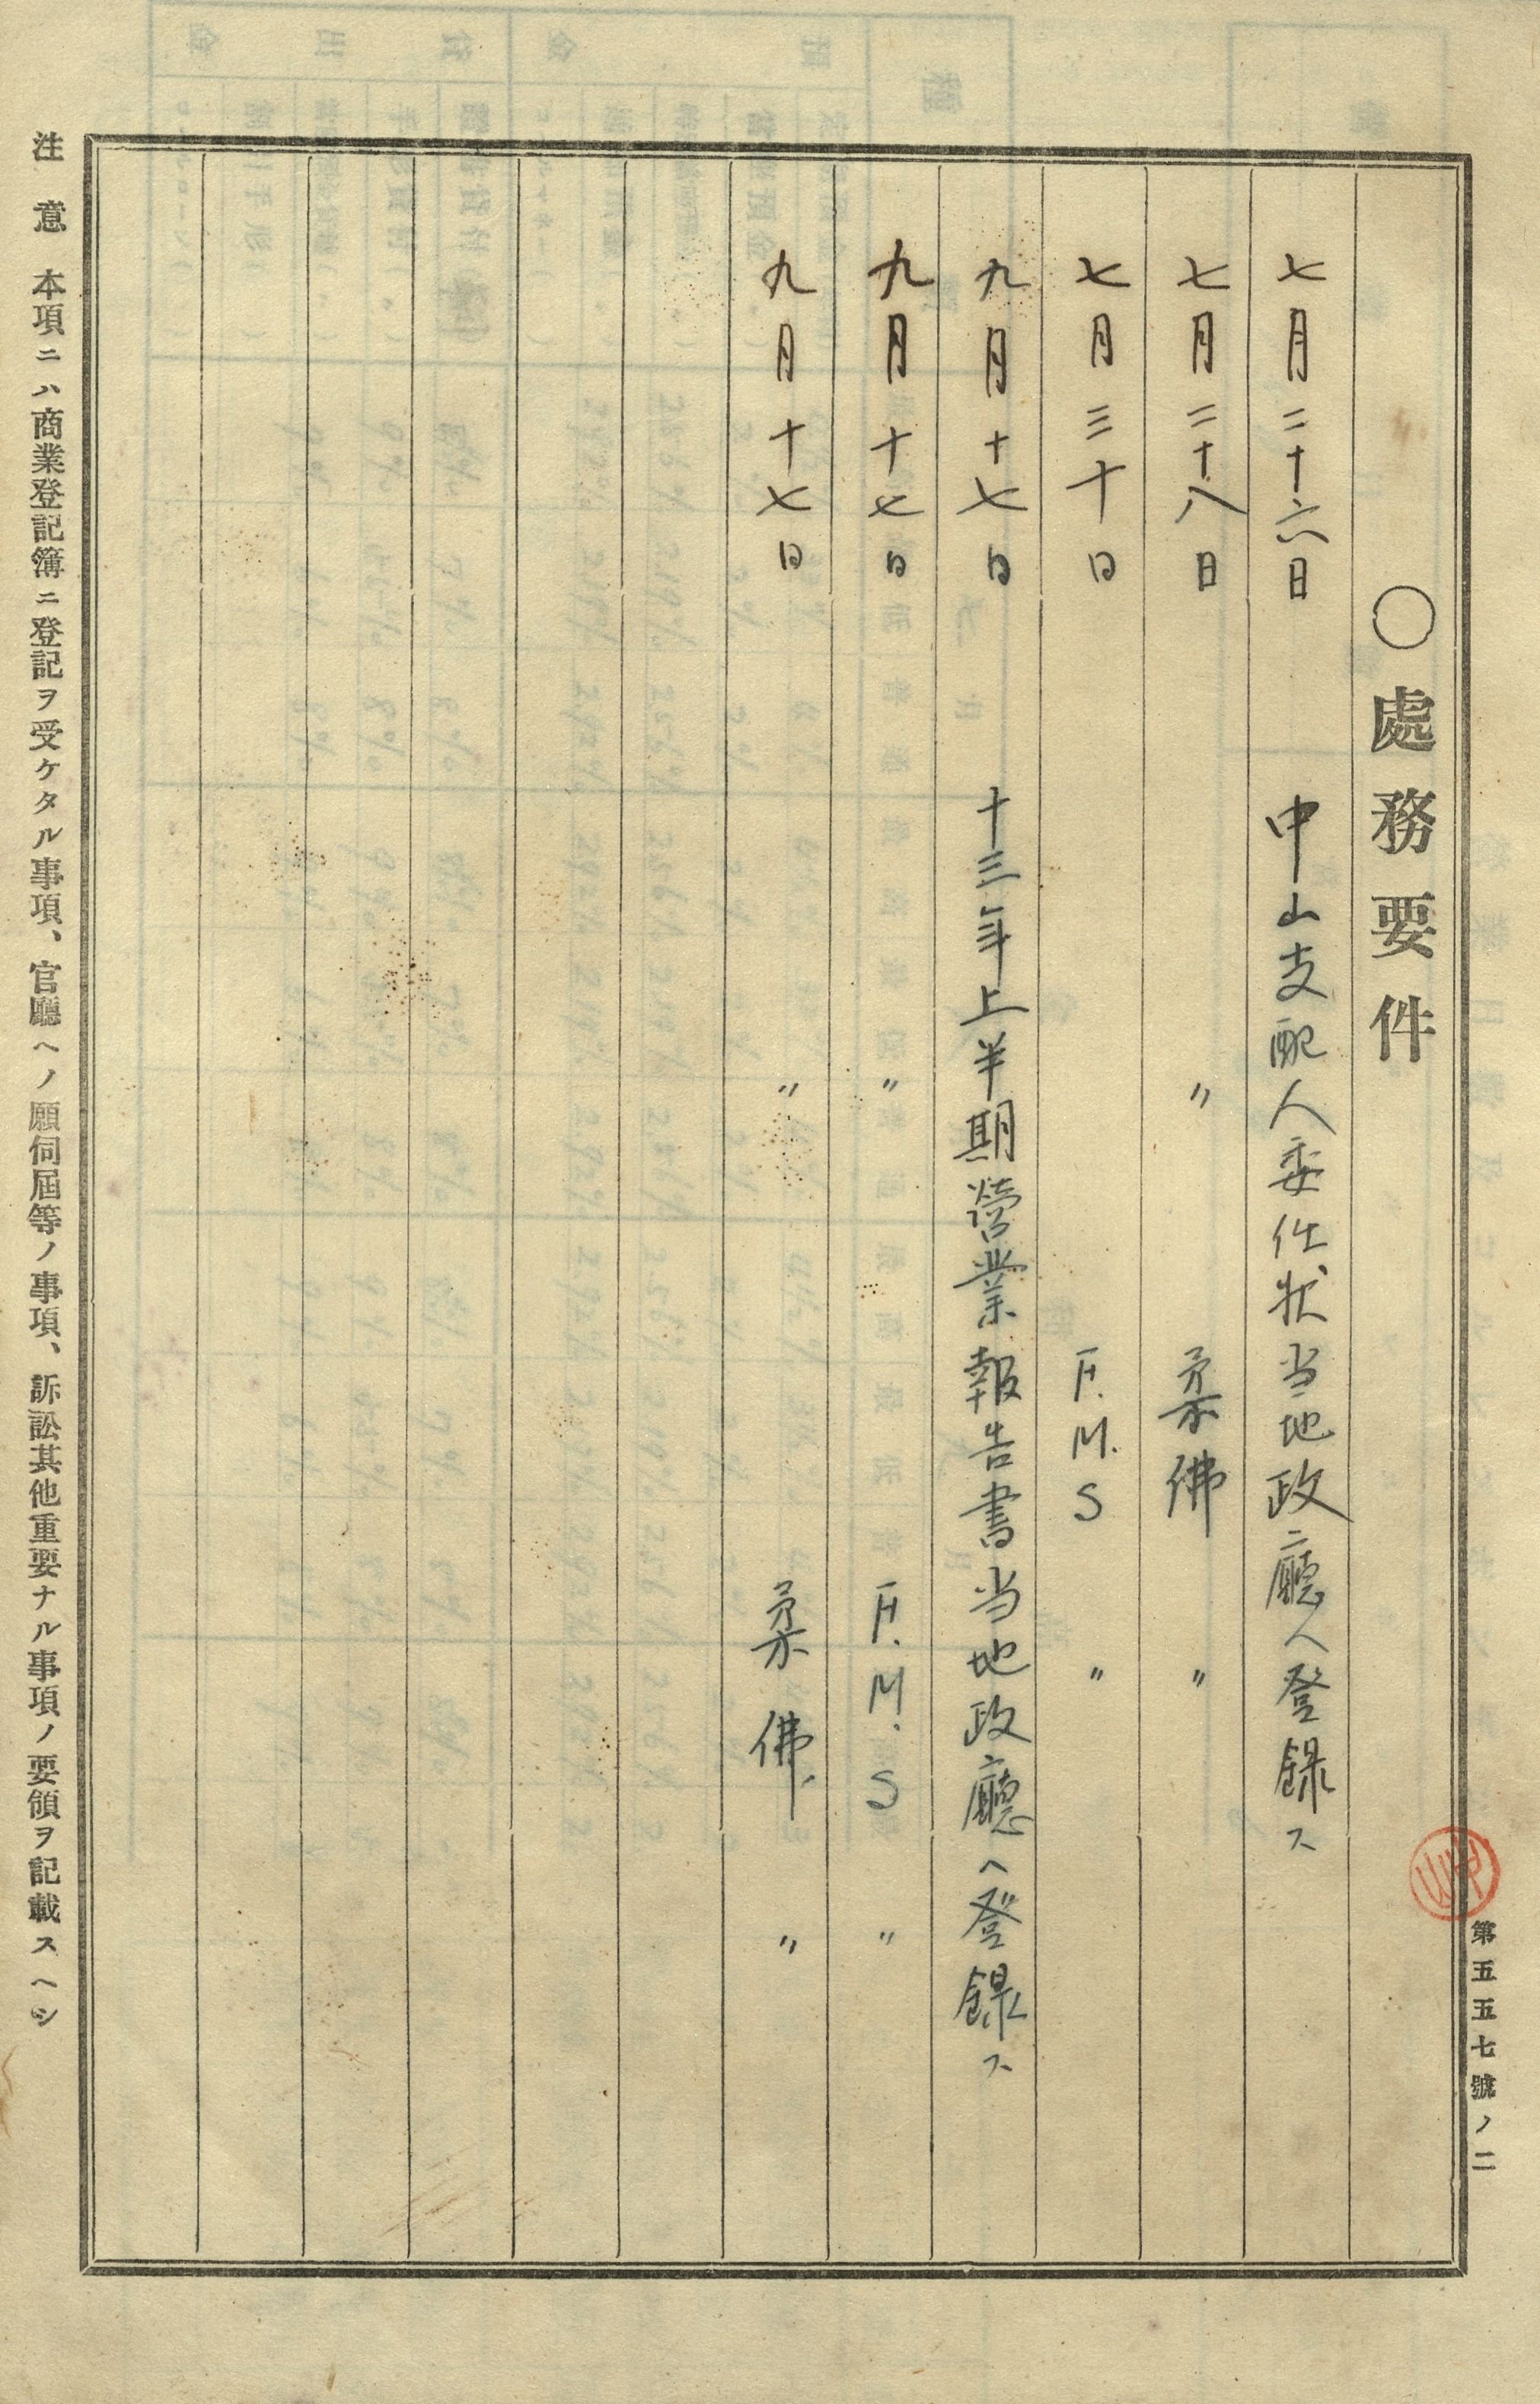 第五五七號ノ二
〇處務要件
七月二十六日 中山支配人委任状当地政廳ヘ登録ス
七月二十八日 〃 柔佛 〃
七月三十日 F.M.S 〃
九月十七日 十三年上半期營業報告書当地政廳ヘ登録ス
九月十七日 〃 F.M.S 〃
九月十七日 〃 柔佛 〃
注意 本項ニハ商業登記簿ニ登記ヲ受ケタル事項、官廳ヘノ願伺屆等ノ事項、訴訟其他重要ナル事項ノ要領ヲ記載スヘシ